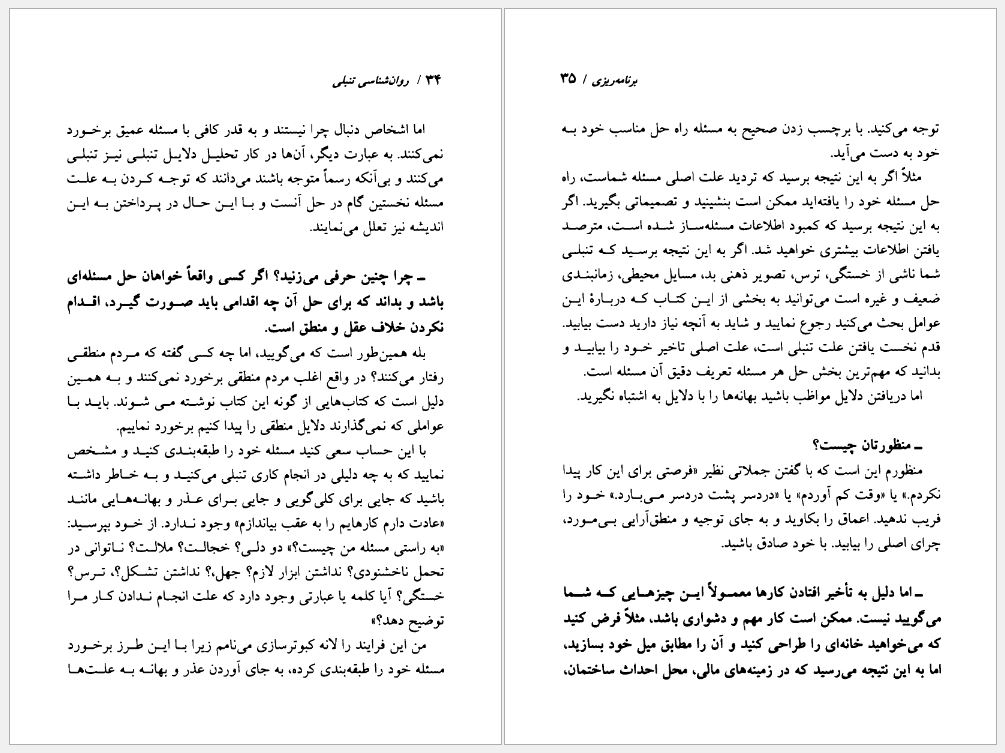 ۳۴ / روان‌شناسی تنبلی
اما اشخاص دنبال چرا نیستند و به قدر کافی با مسئله عمیق برخورد
نمی‌کنند. به عبارت دیگر، آن‌ها در کار تحلیل دلایل تنبلی نیز تنبلی
می‌کنند و بی‌آنکه رسماً متوجه باشند می‌دانند که توجه کردن به علت
مسئله نخستین گام در حل آنست و با این حال در پرداختن به این
اندیشه نیز تعلل می‌نمایند.
ـ چرا چنین حرفی می‌زنید؟ اگر کسی واقعاً خواهان حل مسئله‌ای
باشد و بداند که برای حل آن چه اقدامی باید صورت گیرد، اقدام
نکردن خلاف عقل و منطق است.
بله همین‌طور است که می‌گویید، اما چه کسی گفته که مردم منطقی
رفتار می‌کنند؟ در واقع اغلب مردم منطقی برخورد نمی‌کنند و به همین
دلیل است که کتاب‌هایی از گونه این کتاب نوشته می شوند. باید با
عواملی که نمی‌گذارند دلایل منطقی را پیدا کنیم برخورد نماییم.
با این حساب سعی کنید مسئله خود را طبقه‌بندی کنید و مشخص
نمایید که به چه دلیلی در انجام کاری تنبلی می‌کنید و به خاطر داشته
باشید که جایی برای کلی‌گویی و جایی برای عذر و بهانه‌هایی مانند
«عادت دارم کارهایم را به عقب بیاندازم» وجود ندارد. از خود بپرسید:
«به راستی مسئله من چیست؟» دو دلی؟ خجالت؟ ملالت؟ ناتوانی در
تحمل ناخشنودی؟ نداشتن ابزار لازم؟ جهل،؟ نداشتن تشکل؟، ترس؟
خستگی؟ آیا کلمه یا عبارتی وجود دارد که علت انجام ندادن کار مرا
توضیح دهد؟»
من این فرایند را لانه کبوترسازی می‌نامم زیرا با این طرز برخورد
مسئله خود را طبقه‌بندی کرده، به جای آوردن عذر و بهانه به علت‌ها
برنامه‌ریزی / ۳۵
توجه می‌کنید. با برچسب زدن صحیح به مسئله راه حل مناسب خود به
خود به دست می‌آید.
مثلاً اگر به این نتیجه برسید که تردید علت اصلی مسئله شماست، راه
حل مسئله خود را یافته‌اید ممکن است بنشینید و تصمیماتی بگیرید. اگر
به این نتیجه برسید که کمبود اطلاعات مسئله‌ساز شده است، مترصد
یافتن اطلاعات بیشتری خواهید شد. اگر به این نتیجه برسید که تنبلی
شما ناشی از خستگی، ترس، تصویر ذهنی بد، مسایل محیطی، زمانبندی
ضعیف و غیره است می‌توانید به بخشی از این کتاب که دربارۀ این
عوامل بحث می‌کنید رجوع نمایید و شاید به آنچه نیاز دارید دست بیابید.
قدم نخست یافتن علت تنبلی است، علت اصلی تاخیر خود را بیابید و
بدانید که مهم‌ترین بخش حل هر مسئله تعریف دقیق آن مسئله است.
اما دریافتن دلایل مواظب باشید بهانه‌ها را با دلایل به اشتباه نگیرید.
ـ منظورتان چیست؟
منظورم این است که با گفتن جملاتی نظیر «فرصتی برای این کار پیدا
نکردم.» یا «وقت کم آوردم» یا «دردسر پشت دردسر می‌بارد.» خود را
فریب ندهید. اعماق را بکاوید و به جای توجیه و منطق‌آرایی بی‌مورد،
چرای اصلی را بیابید. با خود صادق باشید.
ـ اما دلیل به تأخیر افتادن کارها معمولاً این چیزهایی که شما
می‌گویید نیست. ممکن است کار مهم و دشواری باشد، مثلاً فرض کنید
که می‌خواهید خانه‌ای را طراحی کنید و آن را مطابق میل خود بسازید،
اما به این نتیجه می‌رسید که در زمینه‌های مالی، محل احداث ساختمان،